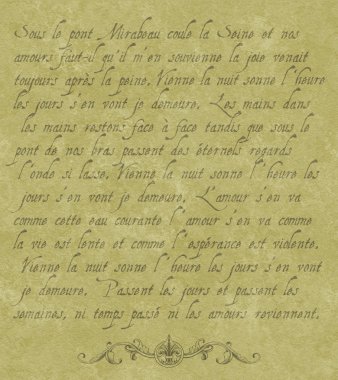 Sous le pont Mirabeau coule la Seine et nos
amours faut-il qu'il m'en souvienne la joie venait
toujours après la peine. Vienne la nuit sonne l'heure
les jours s'en vont je demeure. Les mains dans
les mains restons face à face tandis que sous le
pont de nos bras passent des éternels regards
l'onde si lasse. Vienne la nuit sonne l'heure les
jours s'en vont je demeure. L'amour s'en va
comme cette eau courante l'amour s'en va comme
la vie est lente et comme l'espérance est violente.
Vienne la nuit sonne l'heure les jours s'en vont
je demeure. Passent les jours et passent les
semaines, ni temps passé ni les amours reviennent.